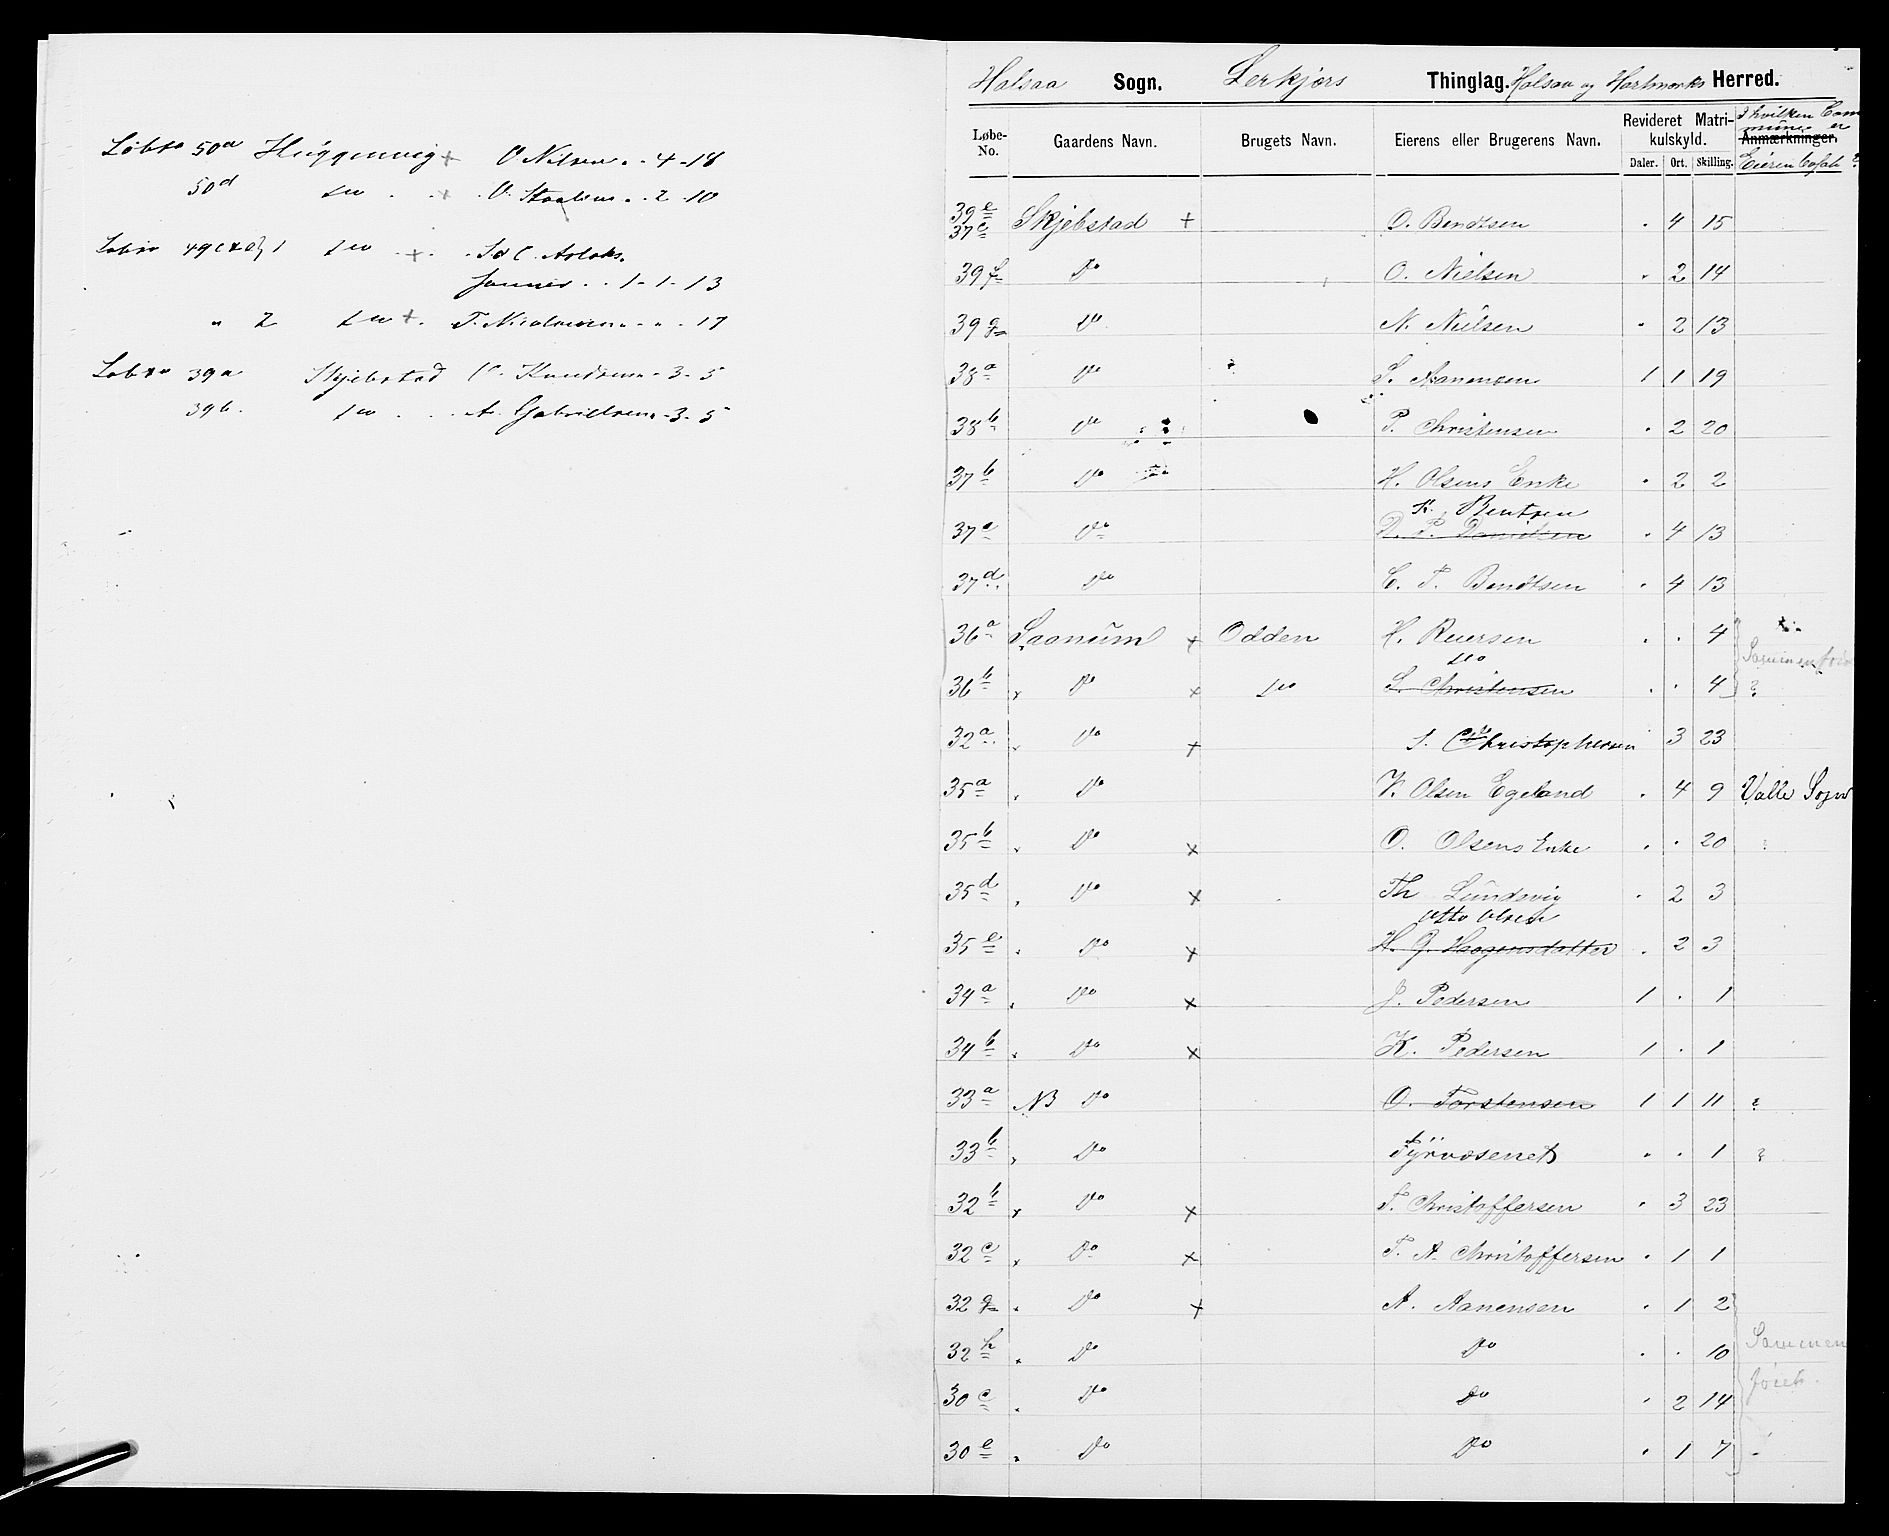 Löbno 50a Huggenvig + O Nilsen . . 4 - 18
50d do . . + O. Staalesen . . 2 - 10
Löbno 49 c & d} 1 do . + . . S & C. Aslaks.
Sønner . . 1 - 1 - 13
" 2 do + . T. Nicolaisen . " . - 17
Löbno 39a Skjebstad C. Knudsen . - 3 - 5
39b. do . . . A. Gabrielsen . - 3 - 5
Halsaa Sogn. Lerkjærs Thinglag. Halsaa og Hartmarks Herred.
Løbe-No. Gaardens Navn. Brugets Navn. Eierens eller Brugerens Navn. Revideret Matrikulskyld. Daler. Ort. Skilling. Anmærkninger. I hvilken Commune er Eieren bosat ?
39e 37c Skjebstad + O. Bendtsen . 4 15
39f Do O. Nielsen . 2 14
39g Do N. Nielsen . 2 13
38a Do S. Aanensen 1 1 19
38b Do P. Christensen . 2 20
37b Do H. Olsens Enke . 2 2
K. Bentsen
37a Do D. P. Danielsen . 4 13
37d Do C. T. Bendtsen . 4 13
36a Saanum + Odden H. Reiersen . . 4
do
36b Do + do S. Christensen . . 4 ?
32a Do + S. Christophersen 3 23
35a Do K. Olsen Egeland . 4 9 Valle Sogn
35b Do + O. Olsens Enke . . 20
35d Do + Th Lundevig . 2 3
Otto Olsen
35e Do + H. G. Haagensdatter . 2 3
34a Do + J. Pedersen 1 . 1
34b Do + K. Pedersen 1 . 1
33a NB Do O. Torstensen 1 1 11 ?
33b Do Fyrvæsenet . . 1 ?
32b Do + T. Christoffersen . 3 23
32c Do + T. A. Christoffersen . 1 1
32g Do + A. Aanensen . 1 2
32h Do Do . . 10 Sammen
30c Do Do . 2 14 føiet.
30e Do Do . 1 7